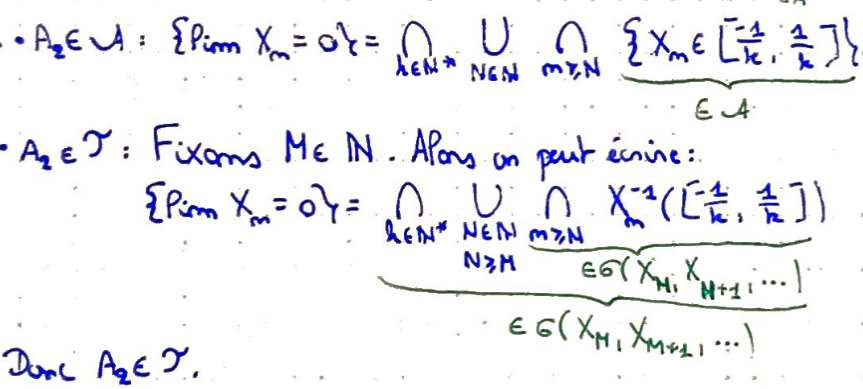 • A₂ ∈ 𝒜 : {lim Xₙ = 0} = ⋂_{k∈ℕ*} ⋃_{N∈ℕ} ⋂_{n≥N} {Xₙ ∈ [-1/k, 1/k]}
∈ 𝒜
• A₂ ∈ 𝒯 : Fixons M ∈ ℕ. Alors on peut écrire :
{lim Xₙ = 0} = ⋂_{k∈ℕ*} ⋃_{N∈ℕ, N≥M} ⋂_{n≥N} Xₙ⁻¹([-1/k, 1/k])
∈ σ(X_M, X_{M+1}, ...)
∈ σ(X_M, X_{M+1}, ...)
Donc A₂ ∈ 𝒯.